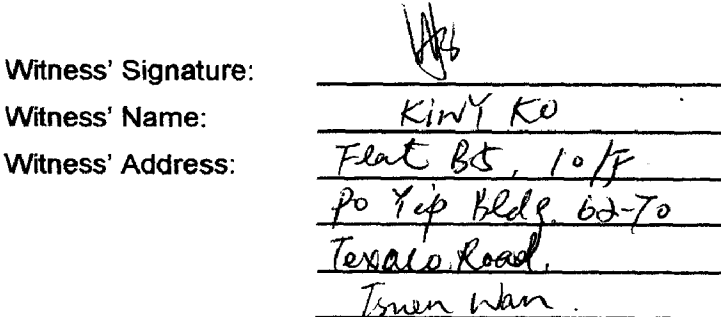 Witness' Signature:
Witness' Name: KINY KO
Witness' Address: Flat B5, 10/F
Po Yip Bldg. 62-70
Texaco Road,
Tsuen Wan.